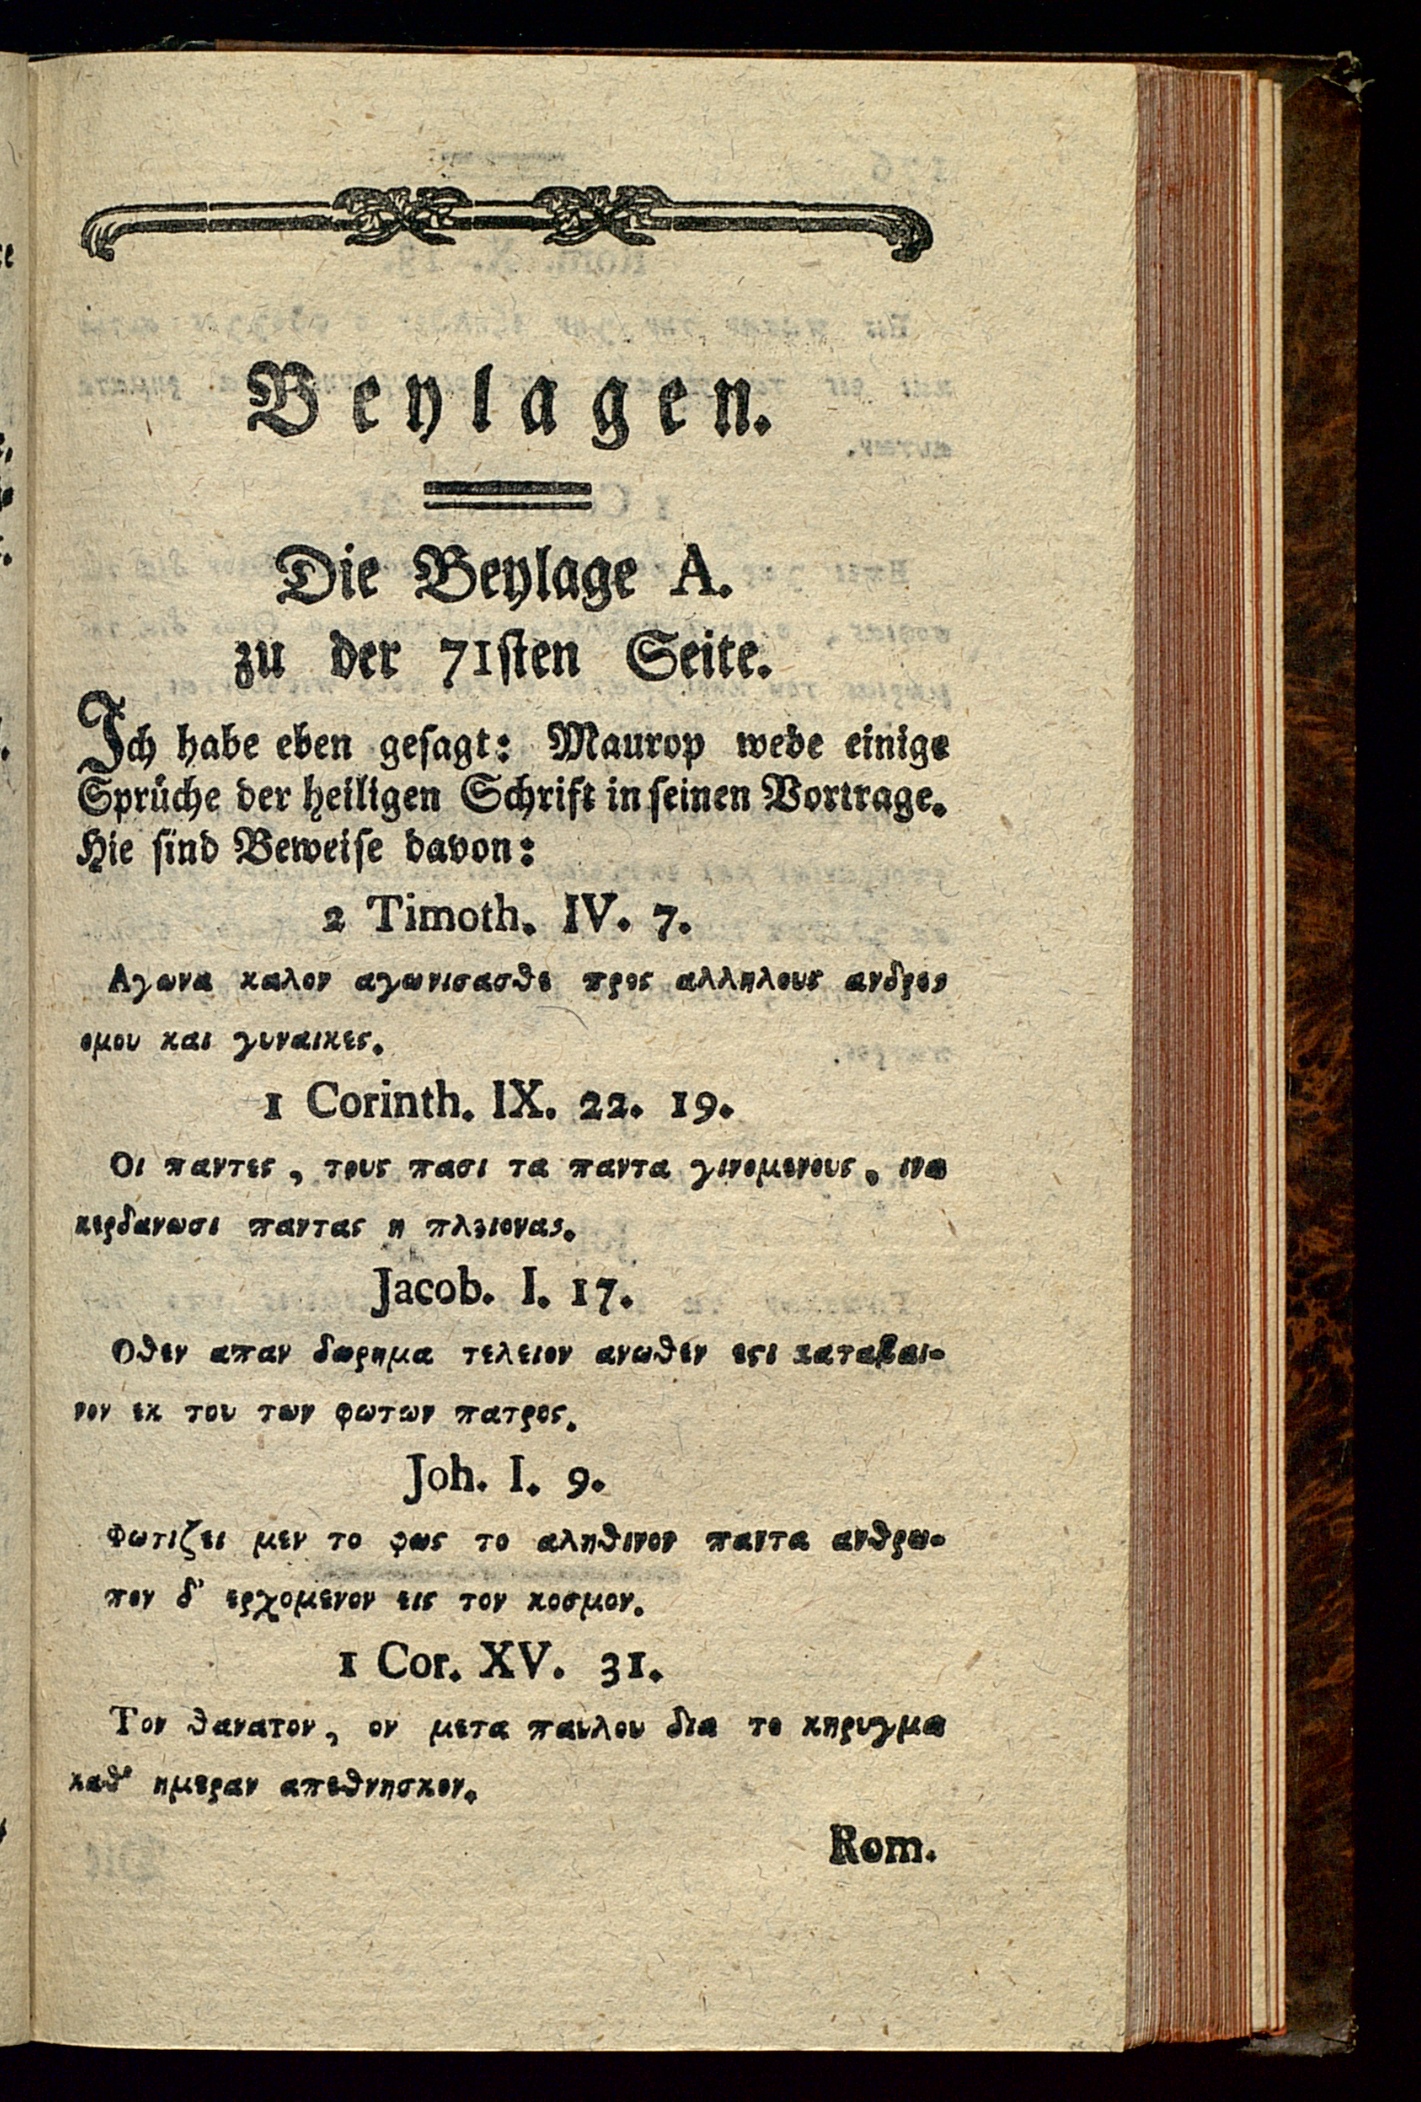 Beylagen.
Die Beylage A.
zu der 71sten Seite.
Ich habe eben gesagt: Maurop webe einige
Sprüche der heiligen Schrift in seinen Vortrage.
Hie sind Beweise davon:
2 Timoth. IV. 7.
Αγωνα καλον αγωνισασθε προς αλληλους ανδρες
ομου και γυναικες.
1 Corinth. IX. 22. 19.
Οι παντες, τους πασι τα παντα γινομενους, ινα
κερδανωσι παντας η πλειονας.
Jacob. I. 17.
Οθεν απαν δωρημα τελειον ανωθεν εϛι καταβαι-
νον εκ του των φωτων πατρος.
Joh. I. 9.
Φωτιζει μεν το φως το αληθινον παντα ανθρω-
πον δ' ερχομενον εις τον κοσμον.
1 Cor. XV. 31.
Τον θανατον, ον μετα παυλου δια το κηρυγμα
καθ' ημεραν απεθνησκον.
Rom.